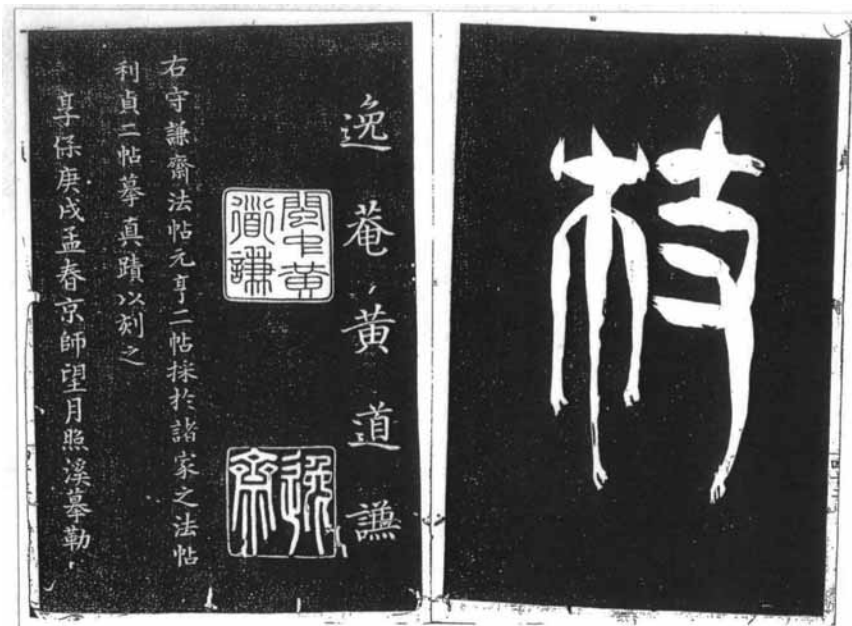 枝
逸菴黄道謙
閩中黄道謙
逸斎
右守謙齋法帖元亨二帖採於諸家之法帖
利貞二帖摹真蹟以刻之
享保庚戌孟春京師望月照溪摹勒